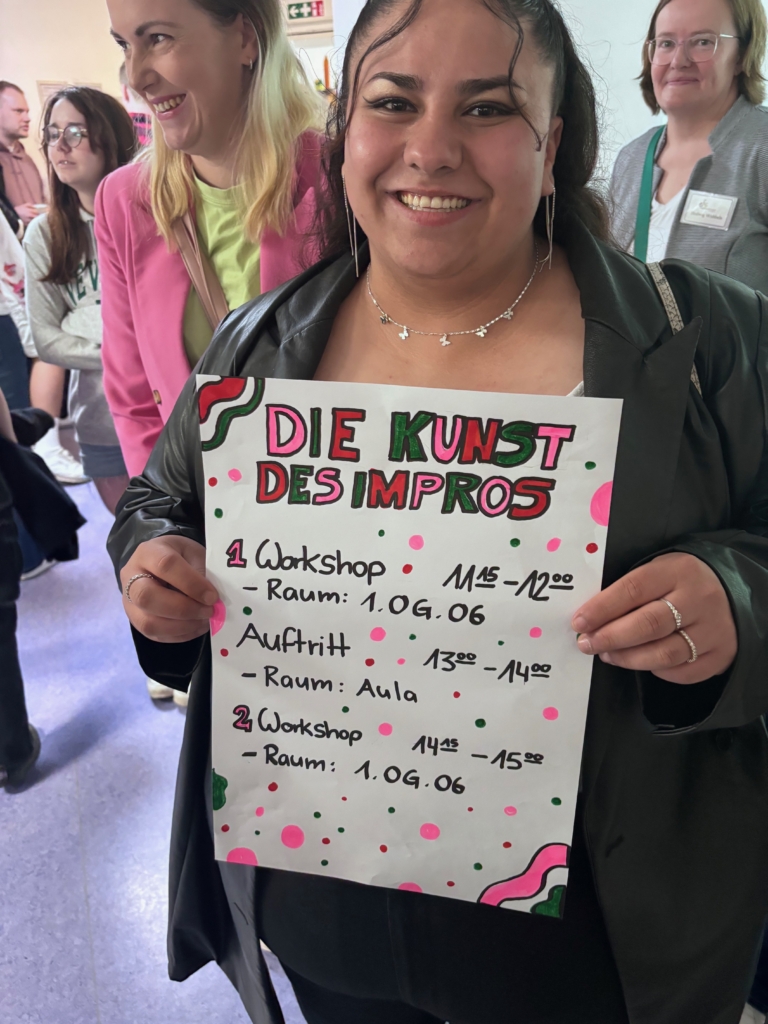 DIE KUNST
DES IMPROS
1 Workshop 11¹⁵ - 12⁰⁰
- Raum: 1.OG.06
Auftritt 13⁰⁰ - 14⁰⁰
- Raum: Aula
2 Workshop 14¹⁵ - 15⁰⁰
- Raum: 1.OG.06